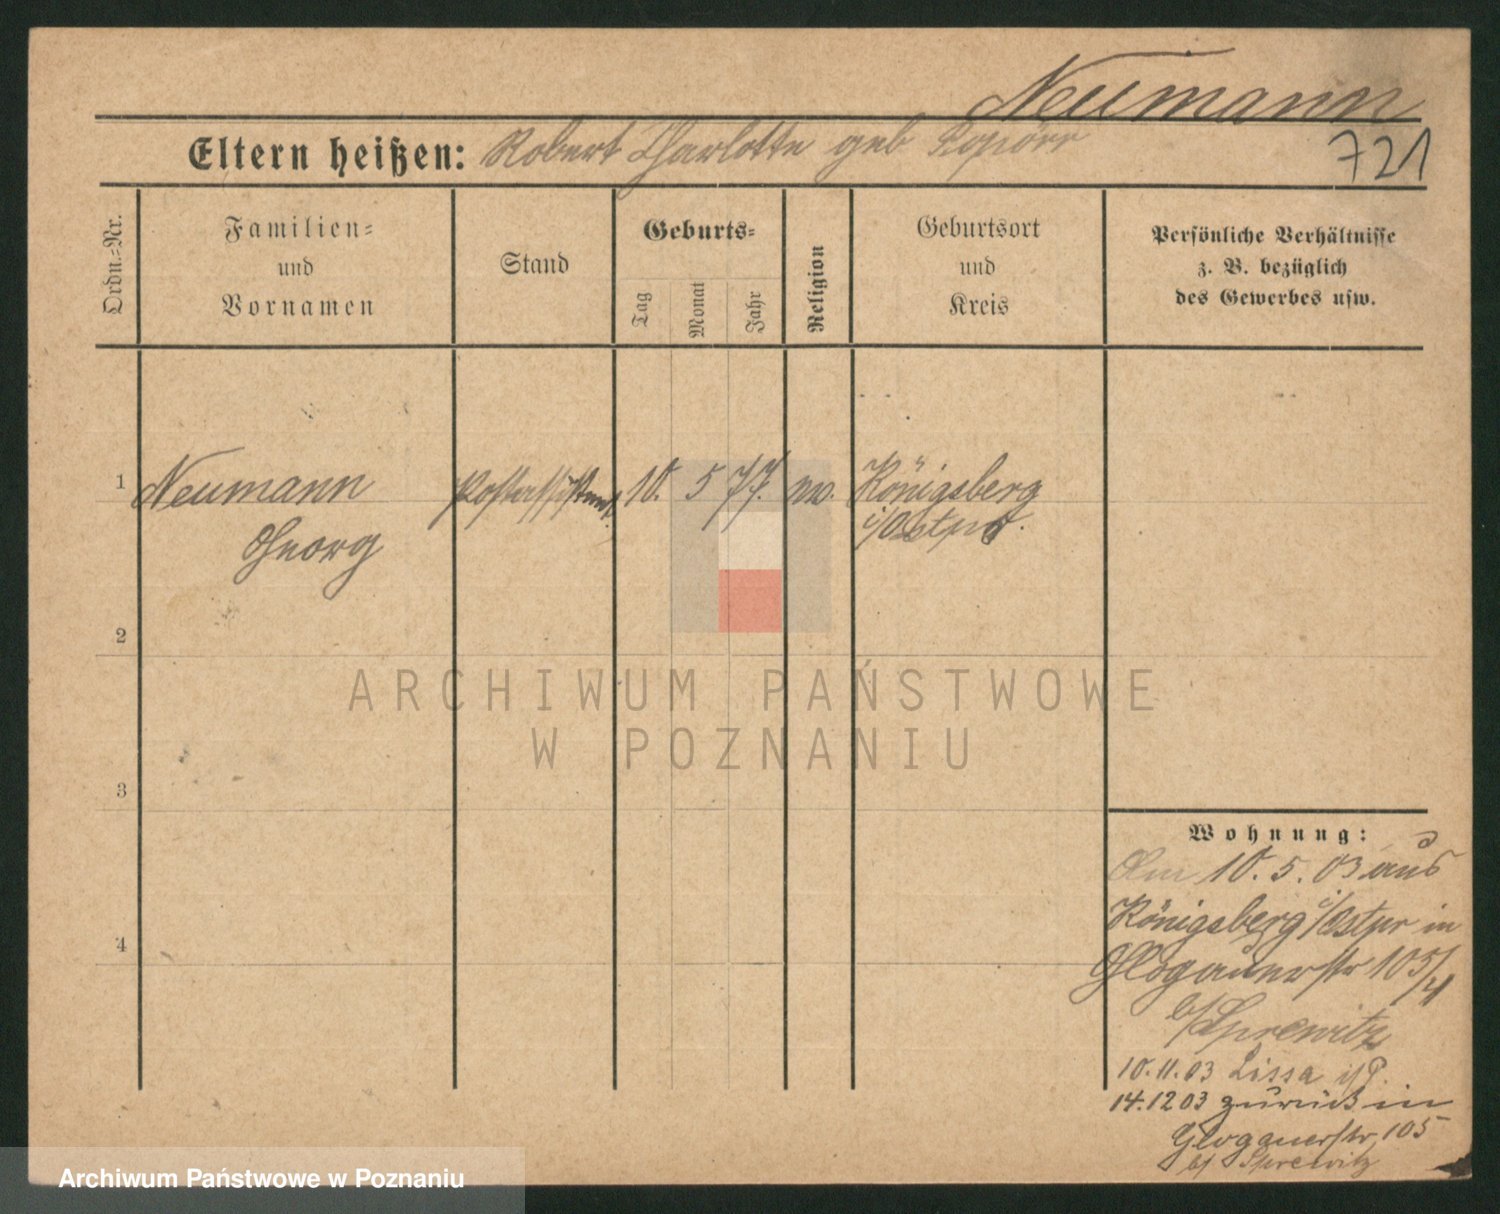 Neumann
Eltern heißen: Robert Charlotte geb
721
Ordn.-Nr.
Familien-
und
Vornamen
Stand
Geburts-
Tag
Monat
Jahr
Religion
Geburtsort
und
Kreis
Persönliche Verhältnisse
z. B. bezüglich
des Gewerbes usw.
1 Neumann Postassistent 10. 5 77. Königsberg
Georg i/Ostpr.
2
3
4
ARCHIWUM PAŃSTWOWE
W POZNANIU
Wohnung:
Am 10. 5. 03 aus
Königsberg i/Ostpr in
Glogauerstr 105/4
b/Sprewitz
10.11.03 Lissa i/P.
14.12 03 zurück in
Glogauerstr 105
b/ Sprewitz
Archiwum Państwowe w Poznaniu